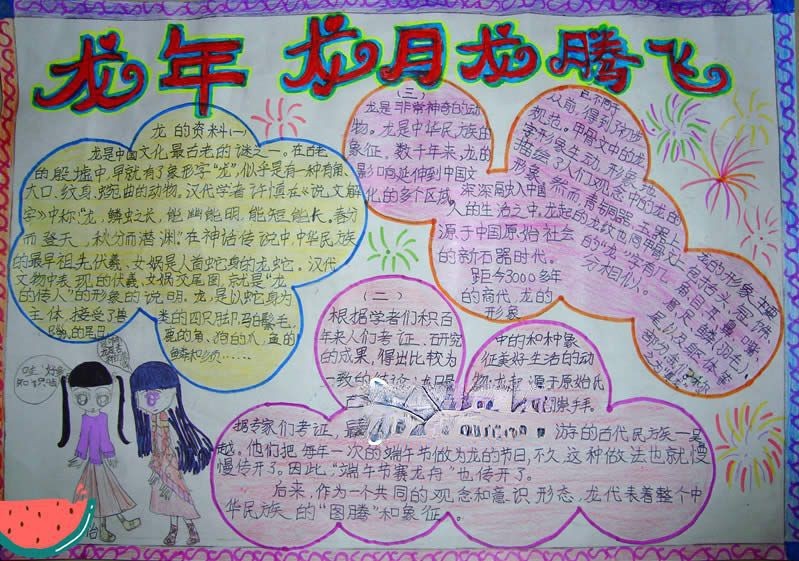 龙年 龙月龙腾飞
龙的资料(一)
龙是中国文化最古老的谜之一。在古老
的殷墟中,早就有了象形字"龙",似乎是有一种有角、
大口、纹身、蛇曲的动物。汉代学者许慎在《说文解
字》中称:"龙,鳞虫之长,能幽能明,能短能长。春分
而登天,秋分而潜渊。"在神话传说中,中华民族
的最早祖先伏羲、女娲是人首蛇身的龙蛇。汉代
文物中表现的伏羲、女娲交尾图,就是"龙
的传人"的形象的说明。龙是以蛇身为
主体,接受了兽类的四只脚马的鬃毛
鹿的角、狗的爪、鱼的
鳞和须……
(三)
龙是非常神奇的动
物。龙是中华民族的
象征。数千年来,龙的
影响延伸到中国文
化的多个区域,
深深扃入中国
人的生活之中。龙起
源于中国原始社会
的新石器时代。
距今3000多年
的商代,龙的
形象
从前,得到初步
规范。甲骨文中的龙
字形象生动,形象地
描绘了人们观念中的龙的
形象。然而青铜器、玉器上
的龙纹也同甲骨文
的"龙"字有几
分相似。
龙的形象主要
包括头、冠、饰、
角、目、耳、鼻、嘴、
肩、足、鳞、羽毛、
尾以及躯体等
(二)
根据学者们积百
年来人们考证、研究
的成果,得出比较为
一致的结论
中的和种象
征美好生活的动
源于原始氏
据专家们考证,最
游的古代民族—吴
越。他们把每年一次的端午节做为龙的节日,不久这种做法也就慢
慢传开了。因此"端午节赛龙舟"也传开了。
后来,作为一个共同的观念和意识形态,龙代表着整个中
华民族的"图腾"和象征。
哇,好多
知识哦